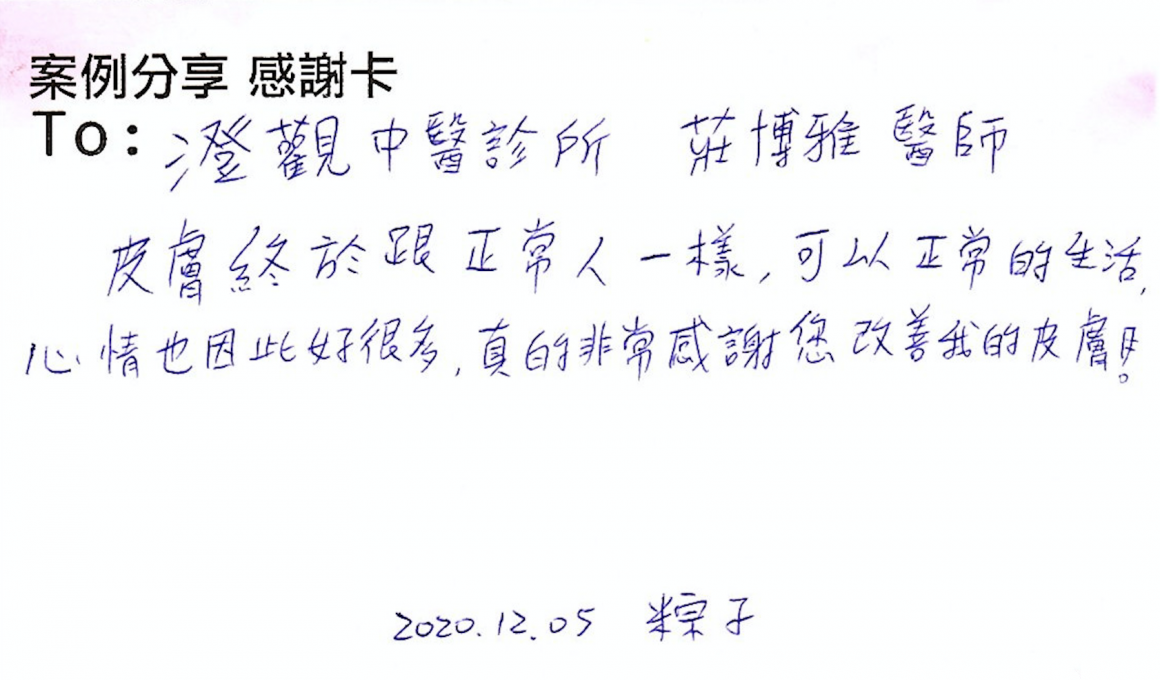 案例分享 感謝卡
To: 澄觀中醫診所 莊博雅醫師
皮膚終於跟正常人一樣,可以正常的生活,
心情也因此好很多,真的非常感謝您改善我的皮膚!
2020.12.05 粽子